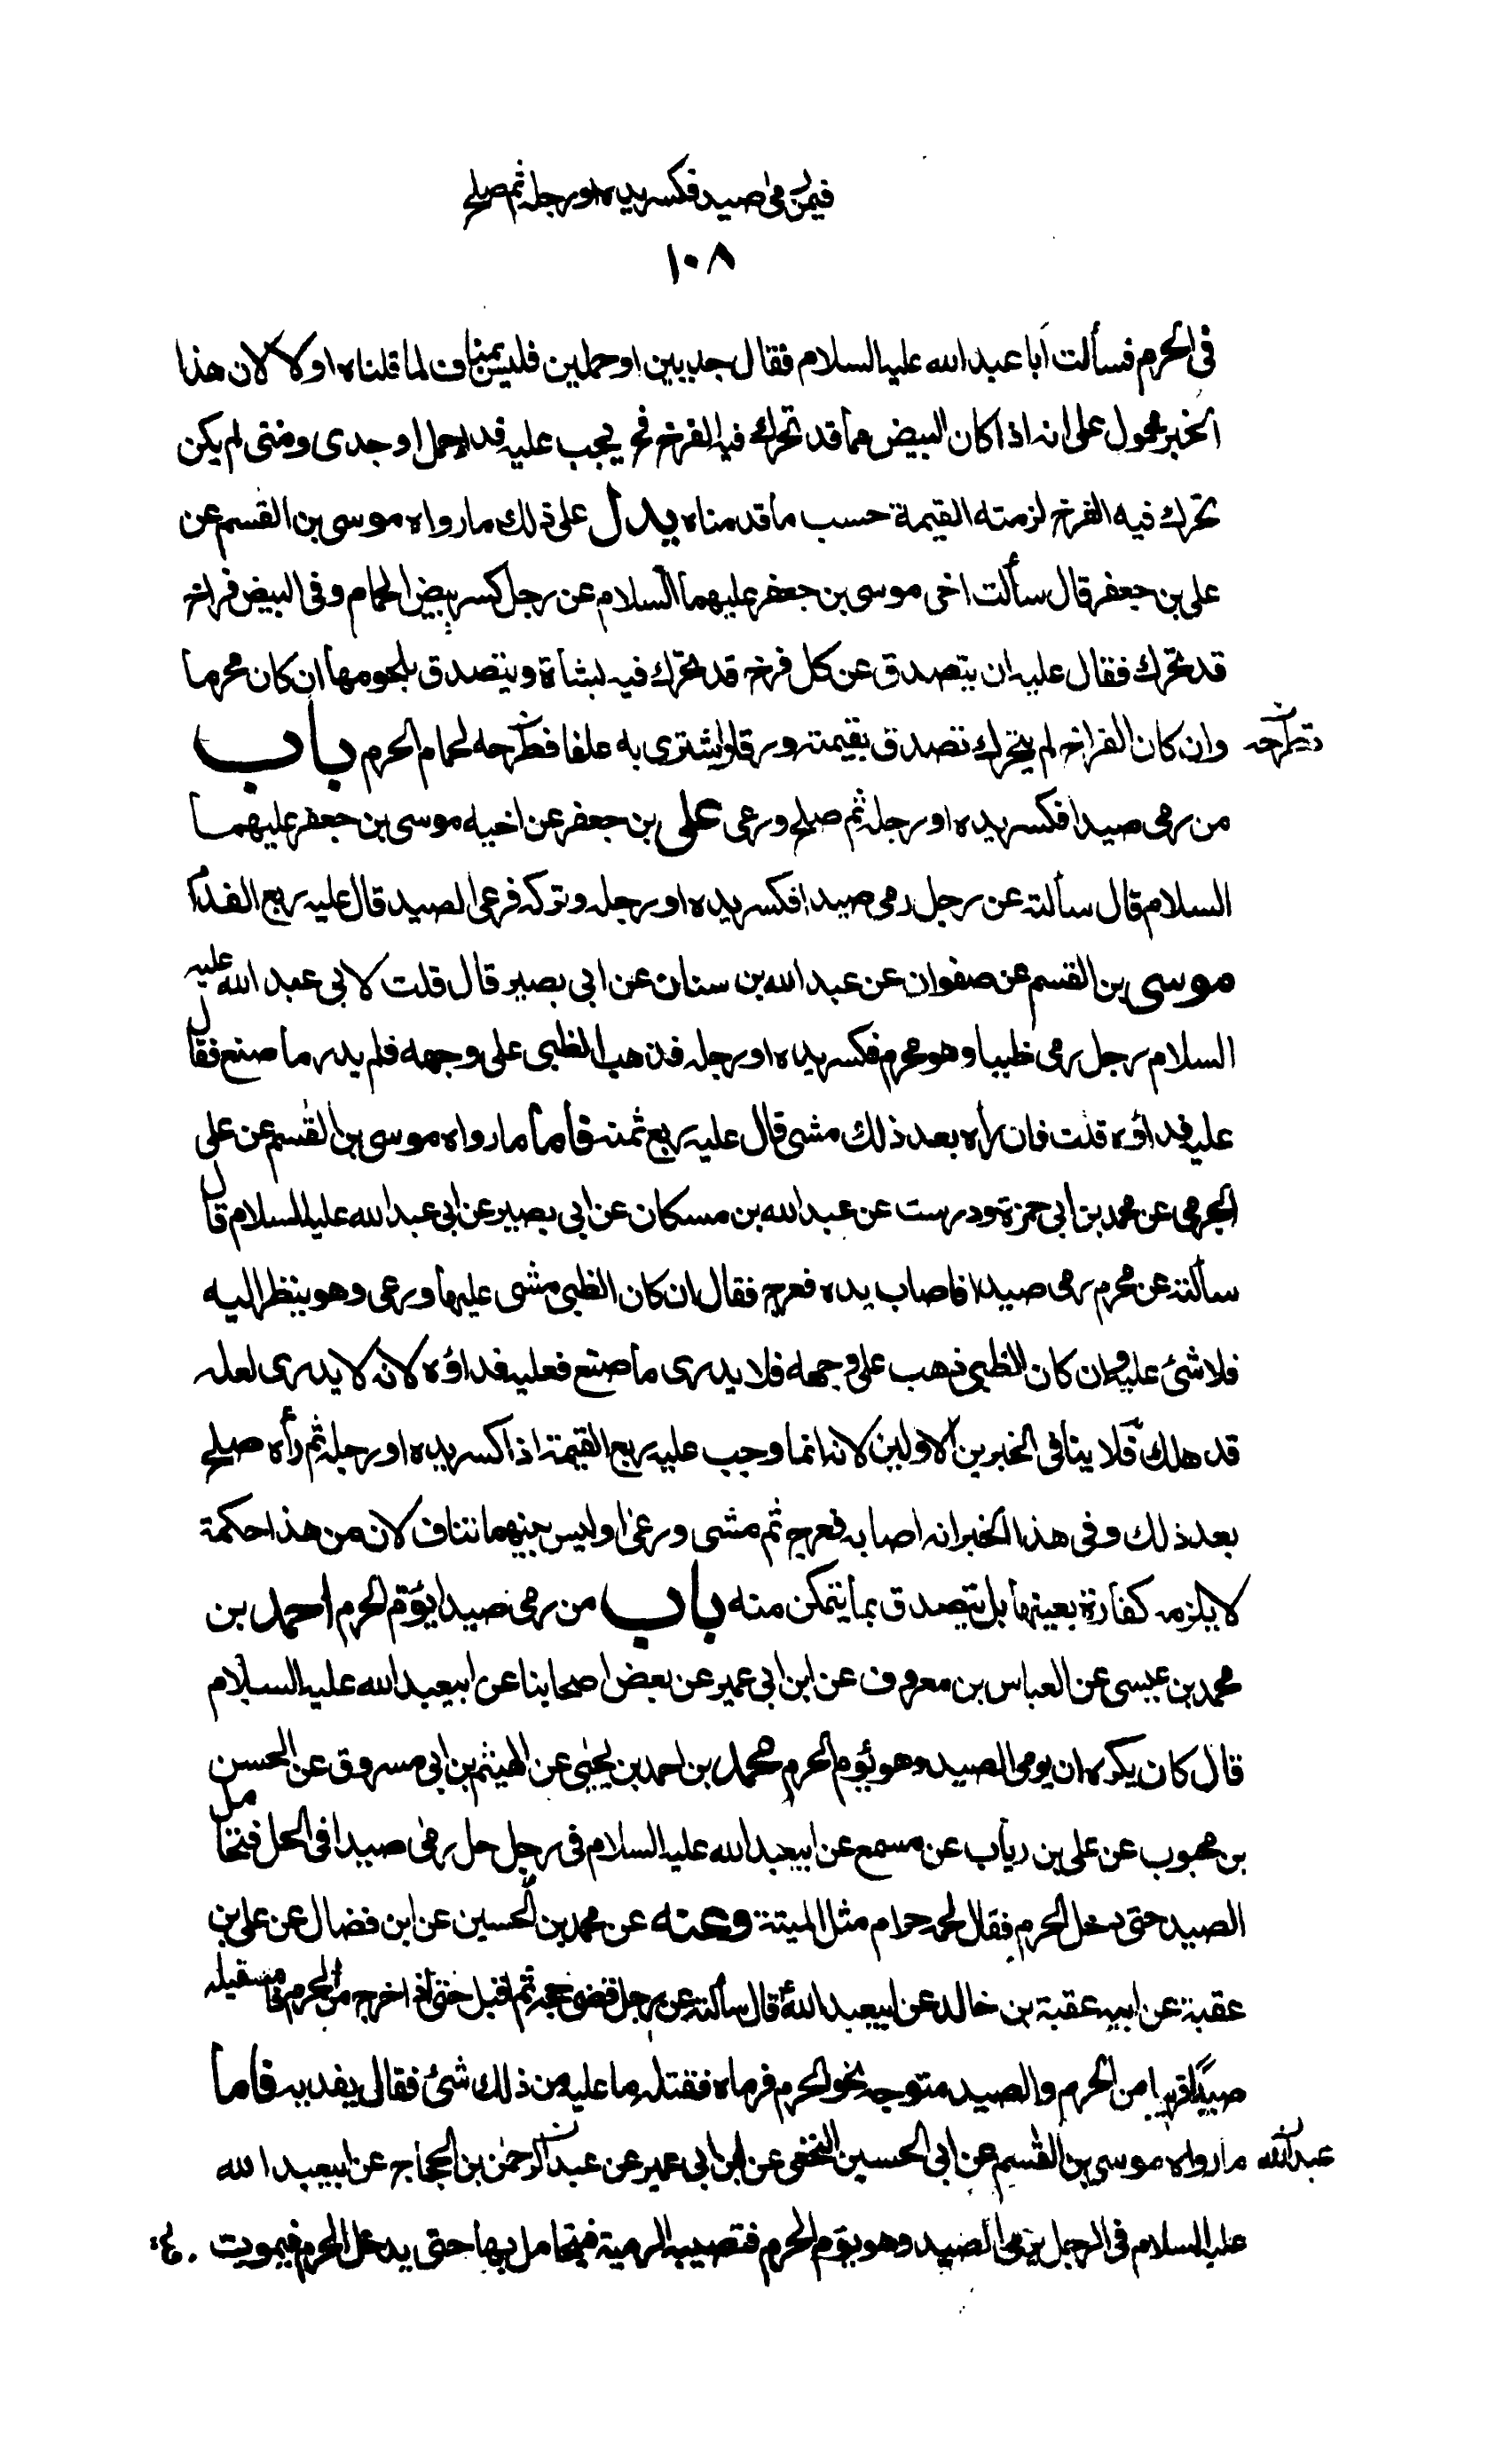 فيمن رمى صيد فكسر يده او رجله ثم صلح
١٠٨
فى الحرم فسألت أبا عبد الله عليه السلام فقال جديين او حملين فليس بمناف لما قلناه او لا لان هذا
الخبر محمول على انه اذا كان البيض مما قد تحرك فيه الفرخ فح يجب عليه فداء حمل او جدى ومتى لم يكن
تحرك فيه الفرخ لزمته القيمة حسب ما قدمناه يدل على ذلك ما رواه موسى بن القسم عن
على بن جعفر قال سألت اخى موسى بن جعفر عليهما السلام عن رجل كسر بيض الحمام وفى البيض فراخ
قد تحرك فقال عليه ان يتصدق عن كل فرخ قد تحرك فيه بشاة ويتصدق بلحومها ان كان محرما
وان كان الفراخ لم يتحرك تصدق بقيمته ورقا او اشترى به علفا فطرحه لحمام الحرم باب
تطرحه
من رمى صيدا فكسر يده او رجله ثم صلح ورعى على بن جعفر عن اخيه موسى بن جعفر عليهما
السلام قال سألته عن رجل رمى صيدا فكسر يده او رجله وتركه فرعى الصيد قال عليه ربع الفداء
موسى بن القسم عن صفوان عن عبد الله بن سنان عن ابى بصير قال قلت لابى عبد الله عليه
السلام رجل رمى ظبيا وهو محرم فكسر يده او رجله فذهب الظبى على وجهه فلم يدر ما صنع فقال
عليه فداؤه قلت فان رآه بعد ذلك مشى قال عليه ربع ثمنه فاما ما رواه موسى بن القسم عن على
الجرمى عن محمد بن ابى حمزة ودرست عن عبد الله بن مسكان عن ابى بصير عن ابى عبد الله عليه السلام قال
سألته عن محرم رمى صيدا فاصاب يده فعرج فقال ان كان الظبى مشى عليها ورعى وهو ينظر اليه
فلا شئ عليه وان كان الظبى ذهب على وجهه فلا يدرى ما صنع فعليه فداؤه لانه لا يدرى لعله
قد هلك فلا ينافى الخبرين الاولين لانه انما وجب عليه ربع القيمة اذا كسر يده او رجله ثم رأه صلح
بعد ذلك وفى هذا الخبر انه اصابه فعرج ثم مشى ورعى او ليس بينهما تناف لان من هذا حكمة
لا يلزمه كفارة بعينها بل يتصدق بما يتمكن منه باب من رمى صيدا يؤم الحرم احمد بن
محمد بن عيسى عن العباس بن معروف عن ابن ابى عمير عن بعض اصحابنا عن ابيعبد الله عليه السلام
قال كان يكره ان يرمى الصيد وهو يؤم الحرم محمد بن احمد بن يحيى عن الهيثم بن ابى مسروق عن الحسن
بن محبوب عن على بن رياب عن مسمع عن ابيعبد الله عليه السلام فى رجل حل رمى صيدا فى الحل فتحامل
الصيد حتى دخل الحرم فقال لحمه حرام مثل الميتة وعنه عن محمد بن الحسين عن ابن فضال عن على بن
عقبة عن ابيه عقبة بن خالد عن ابيعبد الله ع قال سألته عن رجل قضى حجه ثم اقبل حتى اذا خرج من الحرم فاستقبله
صيد قريبا من الحرم والصيد متوجه نحو الحرم فرماه فقتله ما عليه من ذلك شئ فقال يفديه فاما
ما رواه موسى بن القسم عن ابى الحسين النخعى عن ابن ابى عمير عن عبد الرحمن بن الحجاج عن ابيعبد الله
عبد الله
عليه السلام فى الرجل يرمى الصيد وهو يؤم الحرم فتصيبه الرمية فيتحامل بها حتى يدخل الحرم فيموت